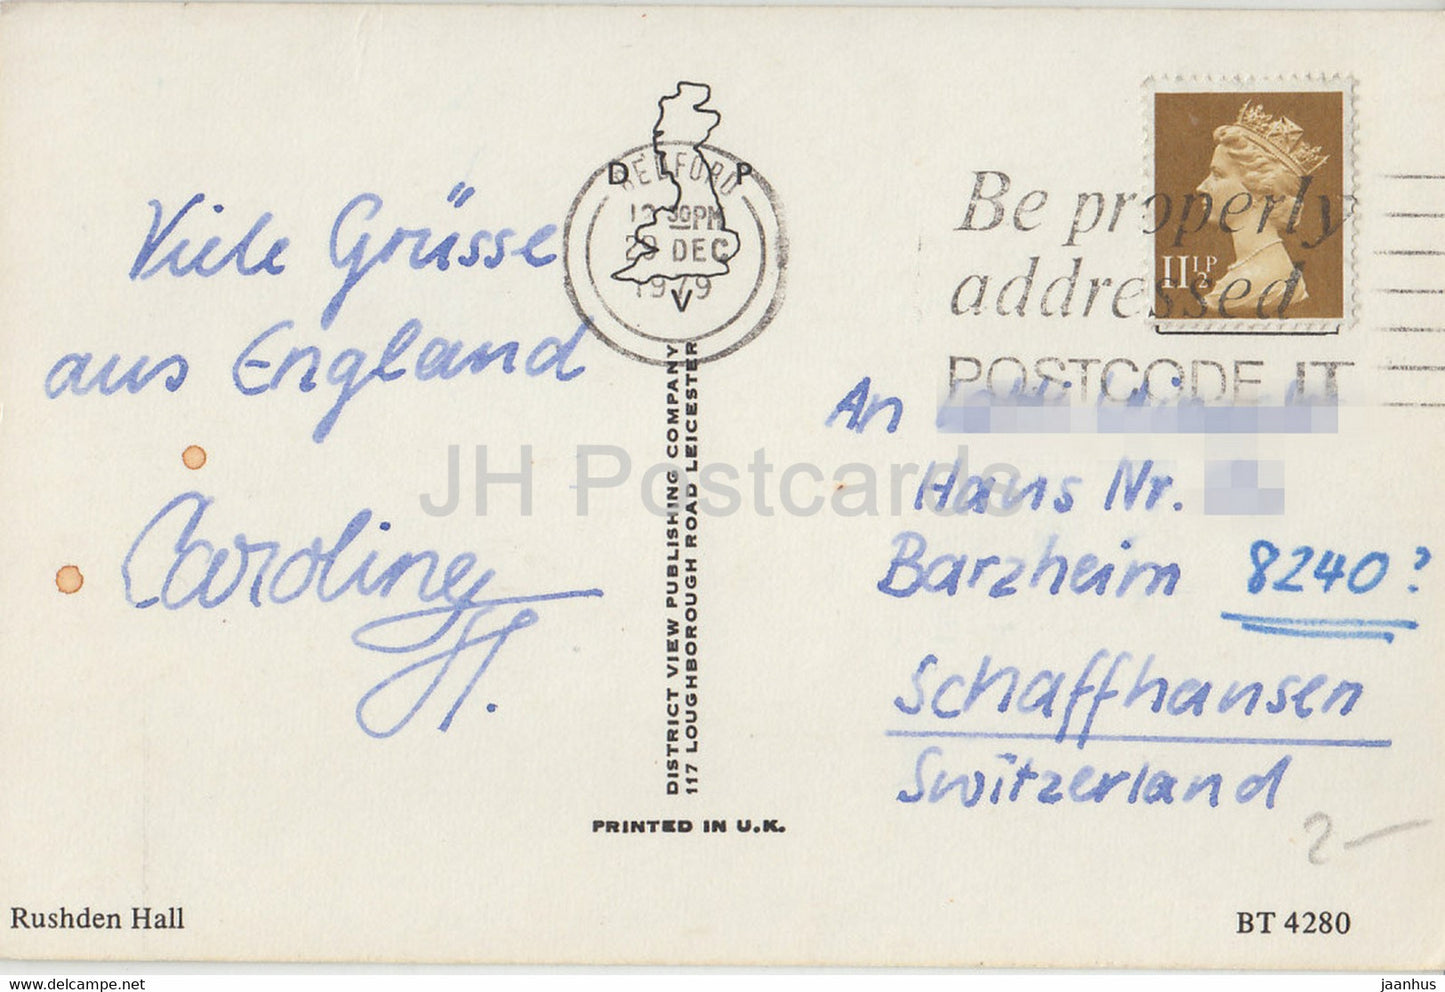 Viele Grüsse
aus England
Caroline
H.
D P
V
BEDFORD
12 30PM
29 DEC
1979
DISTRICT VIEW PUBLISHING COMPANY
117 LOUGHBOROUGH ROAD LEICESTER
PRINTED IN U.K.
Be properly
addressed
POSTCODE IT
11½P
An
Haus Nr.
Barzheim 8240?
Schaffhausen
Switzerland
2-
Rushden Hall
BT 4280
JH Postcards
www.hippostcard.com
jaanhus